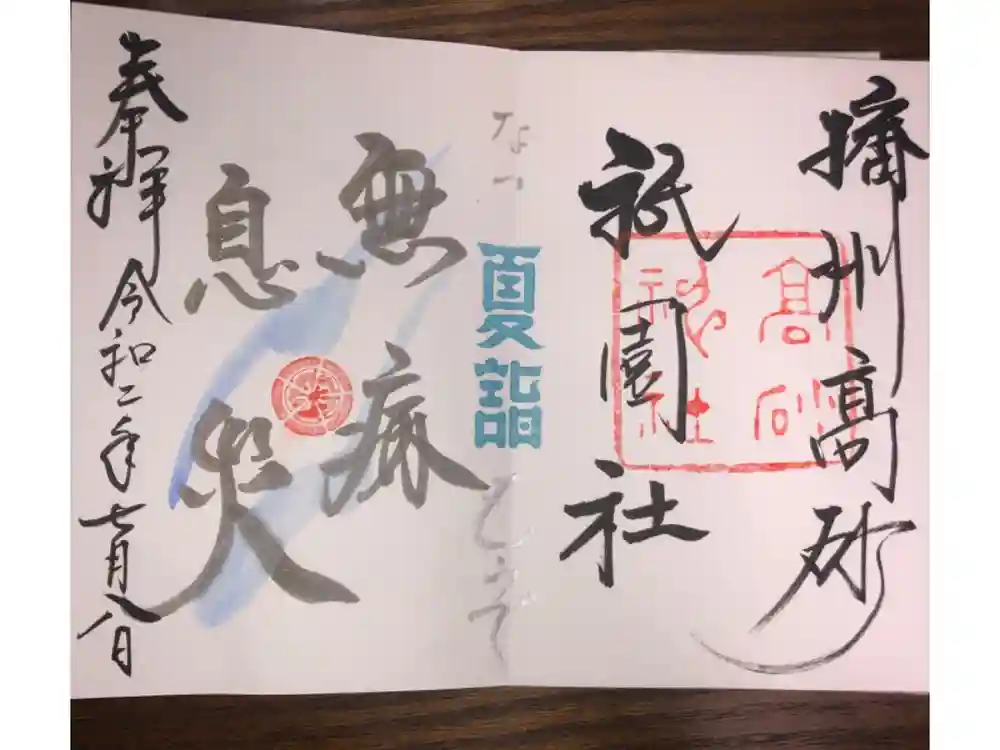 播州高砂
祇園社
高砂
神社
なつ
夏詣
もうで
無病
息災
奉拝 令和二年七月八日